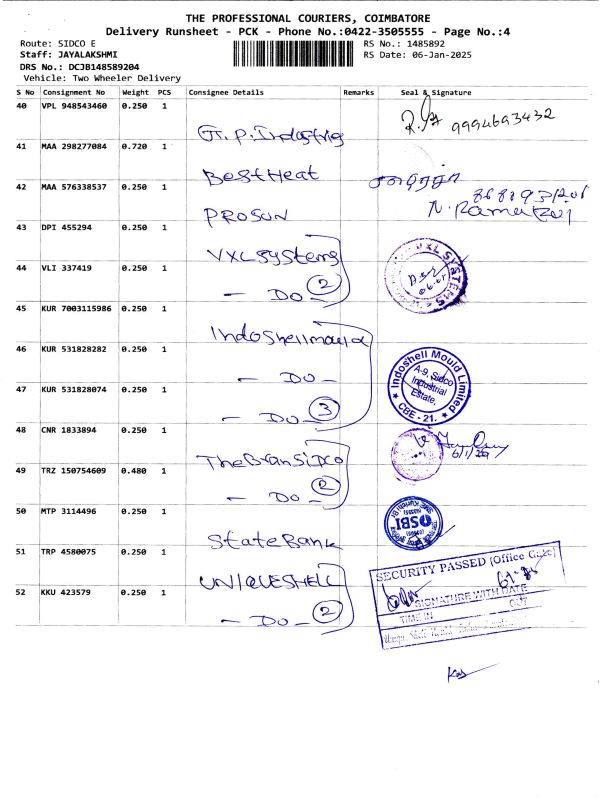 THE PROFESSIONAL COURIERS, COIMBATORE
Delivery Runsheet - PCK - Phone No.:0422-3505555 - Page No.:4
Route: SIDCO E
RS No.: 1485892
Staff: JAYALAKSHMI
RS Date: 06-Jan-2025
DRS No.: DCJB148589204
Vehicle: Two Wheeler Delivery
S No Consignment No Weight PCS Consignee Details Remarks Seal & Signature
40 VPL 948543460 0.250 1
G.P. Industrig
9994693432
41 MAA 298277084 0.720 1
BestHeat
42 MAA 576338537 0.250 1
PROSUN
43 DPI 455294 0.250 1
VXLSystems
VXL SYSTEMS
44 VLI 337419 0.250 1
- DO - 2
45 KUR 7003115986 0.250 1
Indoshellmould
46 KUR 531828282 0.250 1
- DO -
Indoshell Mould Limited
A-9, Sidco
Industrial
Estate,
CBE - 21.
47 KUR 531828074 0.250 1
- DO - 3
48 CNR 1833894 0.250 1
TheBranSidco
49 TRZ 150754609 0.480 1
- DO - 2
50 MTP 3114496 0.250 1
StateBank
SBI
51 TRP 4580075 0.250 1
UNIQUESHELL
SECURITY PASSED (Office Gate)
SIGNATURE WITH DATE
TIME IN OUT
52 KKU 423579 0.250 1
- DO - 2